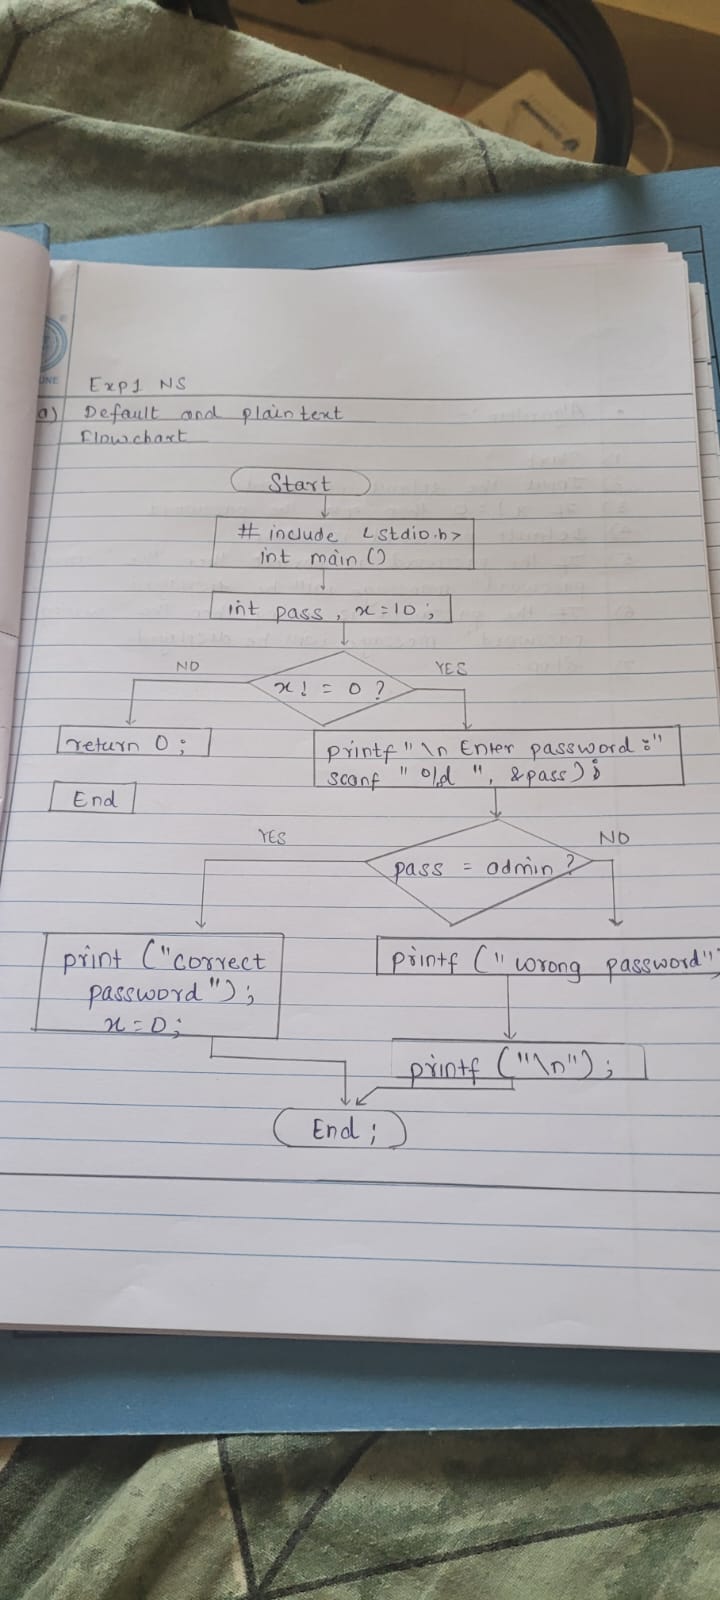 Exp1 NS
a) Default and plain text
Flowchart
Start
# include <stdio.h>
int main ()
int pass , x = 10 ;
NO
YES
x ! = 0 ?
return 0 ;
printf "\n Enter password :"
scanf " %d ", &pass ) ;
End
YES
NO
pass = admin ?
print ("correct
password") ;
x = 0 ;
printf (" wrong password"
printf ("\n") ;
End ;